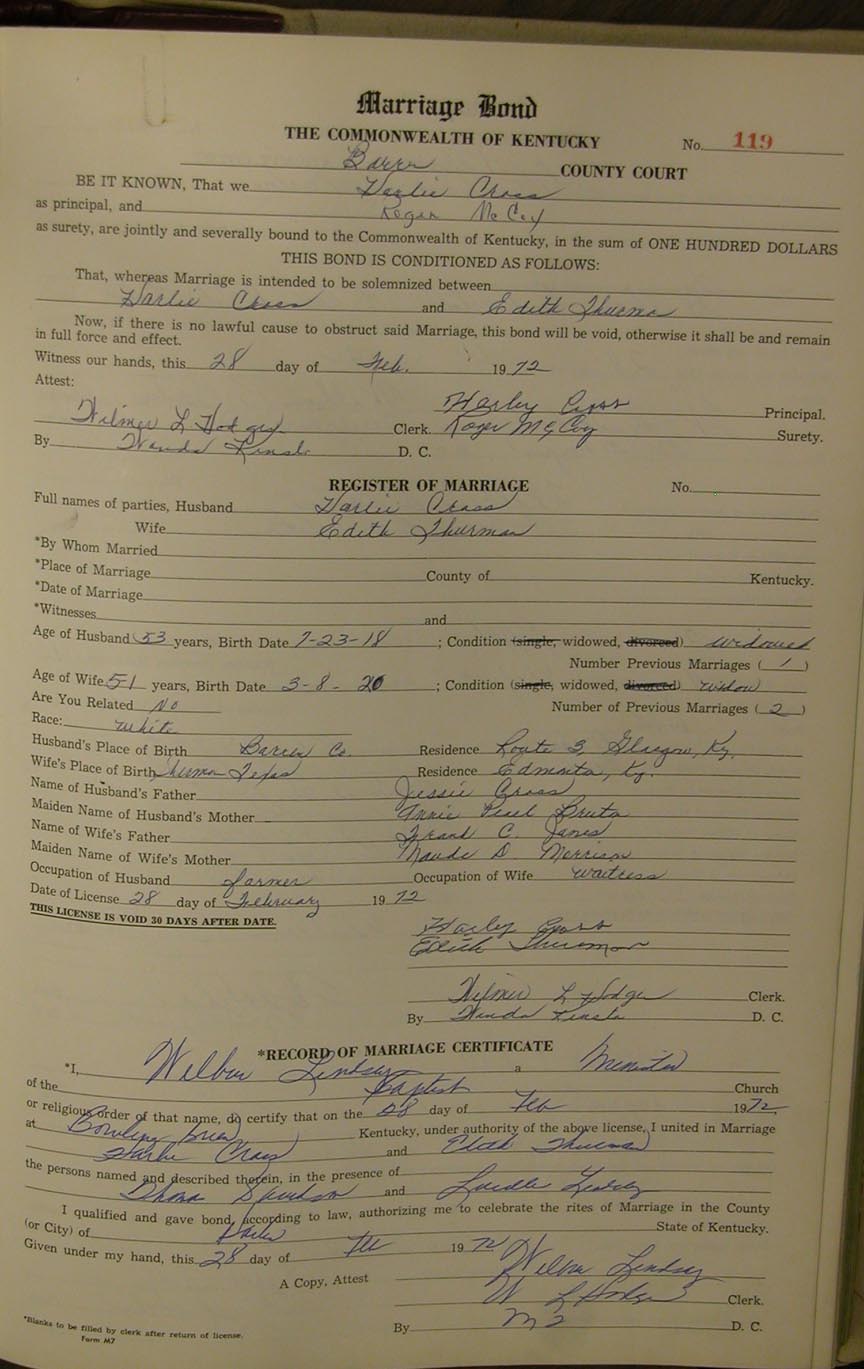 Marriage Bond
THE COMMONWEALTH OF KENTUCKY No. 119
Barren COUNTY COURT
BE IT KNOWN, That we Harlie Cross
as principal, and Roger McCoy
as surety, are jointly and severally bound to the Commonwealth of Kentucky, in the sum of ONE HUNDRED DOLLARS
THIS BOND IS CONDITIONED AS FOLLOWS:
That, whereas Marriage is intended to be solemnized between
Harlie Cross and Edith Thurman
Now, if there is no lawful cause to obstruct said Marriage, this bond will be void, otherwise it shall be and remain
in full force and effect.
Witness our hands, this 28 day of Feb. 1972
Attest:
Harley Cross Principal.
Wilmer L Hodges Clerk. Roger McCoy Surety.
By Wanda D. C.
REGISTER OF MARRIAGE No.
Full names of parties, Husband Harlie Cross
Wife Edith Thurman
*By Whom Married
*Place of Marriage County of Kentucky.
*Date of Marriage
*Witnesses and
Age of Husband 53 years, Birth Date 7-23-18 ; Condition (single, widowed, divorced) widowed
Number Previous Marriages ( 1 )
Age of Wife 51 years, Birth Date 3-8-20 ; Condition (single, widowed, divorced) widow
Are You Related No Number of Previous Marriages ( 2 )
Race: White
Husband's Place of Birth Barren Co. Residence Route 3, Glasgow, Ky.
Wife's Place of Birth Texas Residence Edmonton, Ky.
Name of Husband's Father Jessie Cross
Maiden Name of Husband's Mother Annie Pearl
Name of Wife's Father Frank C. Janes
Maiden Name of Wife's Mother Maude D Morrison
Occupation of Husband farmer Occupation of Wife Waitress
Date of License 28 day of February 1972
THIS LICENSE IS VOID 30 DAYS AFTER DATE.
Harley Cross
Edith Thurman
Wilmer L Hodges Clerk.
By Wanda D. C.
*RECORD OF MARRIAGE CERTIFICATE
*I, Wilbur Lindsay a Minister
of the Baptist Church
or religious order of that name, do certify that on the 28 day of Feb 1972,
at Bowling Kentucky, under authority of the above license, I united in Marriage
Harlie Cross and Edith Thurman
the persons named and described therein, in the presence of
and
I qualified and gave bond, according to law, authorizing me to celebrate the rites of Marriage in the County
(or City) of Barren State of Kentucky.
Given under my hand, this 28 day of Feb 1972
Wilbur Lindsay
A Copy, Attest W L Hodges Clerk.
By D. C.
*Blanks to be filled by clerk after return of license.
Form M7